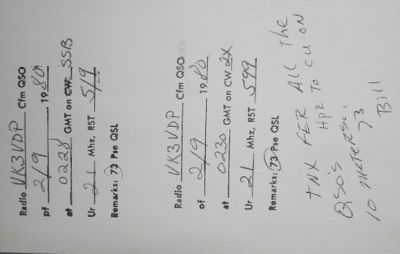 Radio VK3VDP Cfm QSO
of 2/9 1980
at 0228 GMT on CW SSB
Ur 21 Mhz, RST 5/9
Remarks: 73 Pse QSL
Radio VK3VDP Cfm QSO
of 2/9 1980
at 0230 GMT on CW 2X
Ur 21 Mhz, RST 599
Remarks: 73 Pse QSL
TNX FER All the
QSO'S HPE TO CU ON
10 meters.
73
Bill